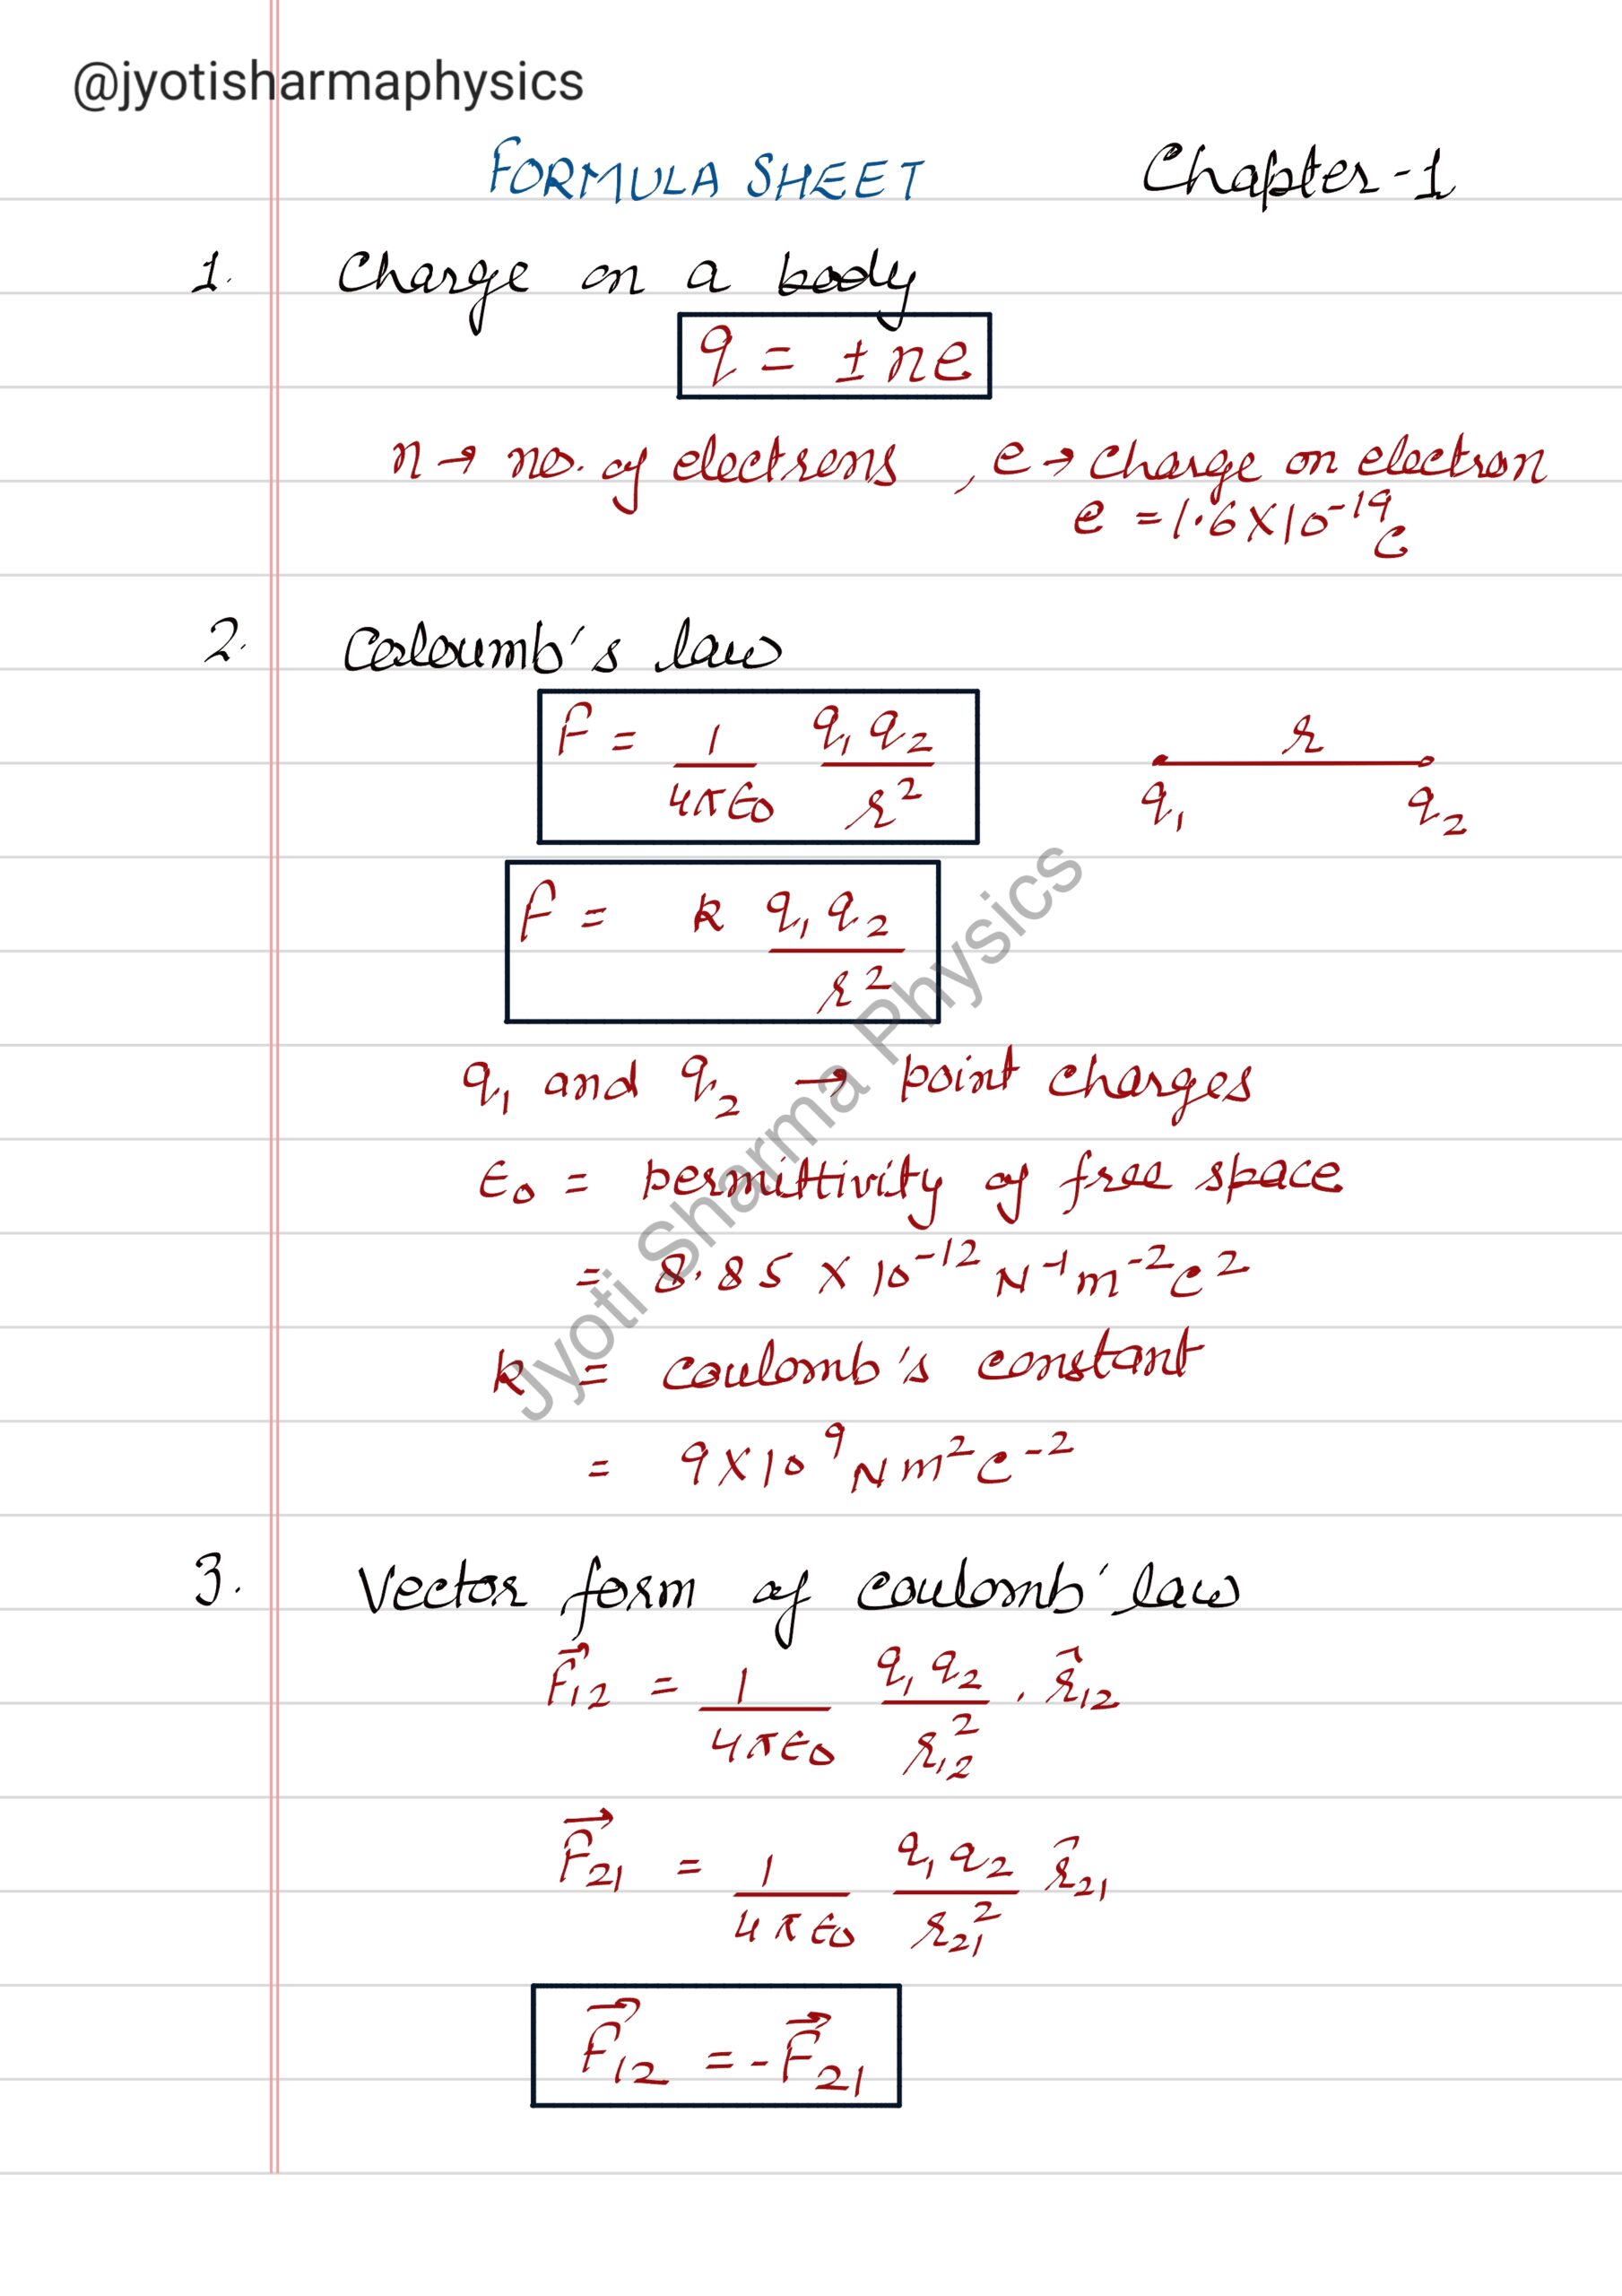 @jyotisharmaphysics
FORMULA SHEET Chapter-1
1. Charge on a body
q = ± ne
n → no. of electrons , e → charge on electron
e = 1.6 X 10⁻¹⁹ C
2. Coloumb's law
F = 1/4πϵ₀ q₁q₂/r²
r
q₁ q₂
F = k q₁q₂/r²
q₁ and q₂ → point charges
ϵ₀ = permittivity of free space
= 8.85 X 10⁻¹² N⁻¹ m⁻² C²
k = coulomb's constant
= 9 X 10⁹ N m² C⁻²
3. Vector form of coulomb' law
F⃗₁₂ = 1/4πϵ₀ q₁q₂/r₁₂² . r̂₁₂
F⃗₂₁ = 1/4πϵ₀ q₁q₂/r₂₁² r̂₂₁
F⃗₁₂ = - F⃗₂₁
Jyoti Sharma Physics